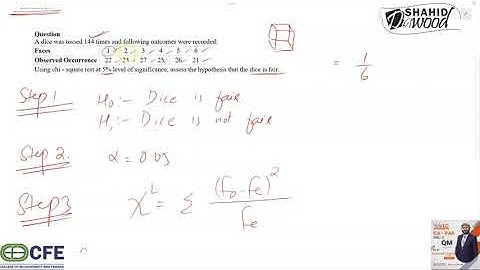 SHAHID
Dawood
Question
A dice was tossed 144 times and following outcomes were recorded.
Faces 1 2 3 4 5 6
Observed Occurrence 22 23 27 25 26 21
Using chi - square test at 5% level of significance, assess the hypothesis that the dice is fair.
= 1/6
Step 1 H₀:- Dice is fair
H₁:- Dice is not fair
Step 2. α = 0.05
Step 3 χ² = Σ (fo - fe)² / fe
CFE
COLLEGE OF ACCOUNTANCY AND FINANCE
QM